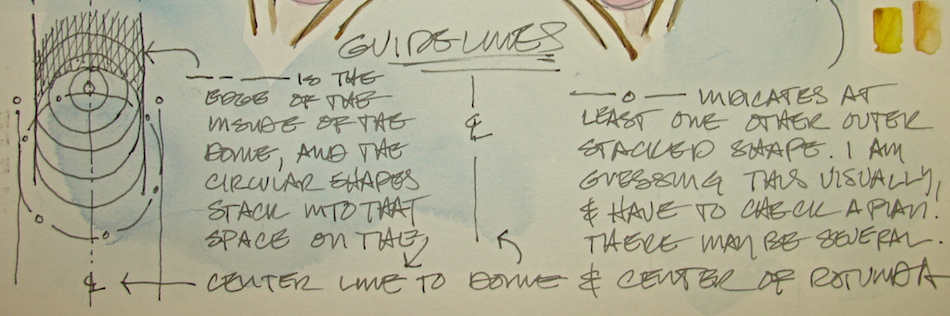 GUIDELINES
— — — — IS THE
EDGE OF THE
INSIDE OF THE
DOME, AND THE
CIRCULAR SHAPES
STACK INTO THAT
SPACE ON THE
CENTER LINE TO DOME & CENTER OF ROTUNDA
℄
℄
—o— INDICATES AT
LEAST ONE OTHER OUTER
STACKED SHAPE. I AM
GUESSING THIS VISUALLY,
& HAVE TO CHECK A PLAN.
THERE MAY BE SEVERAL.